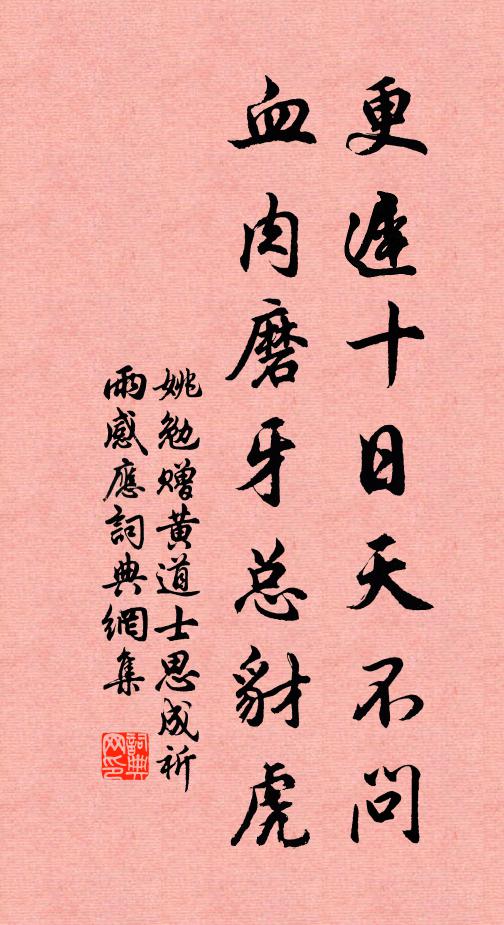 更遲十日天不問
血肉磨牙总豺虎
姚勉贈黄道士思成祈
雨感應詞典網集
詞典網印